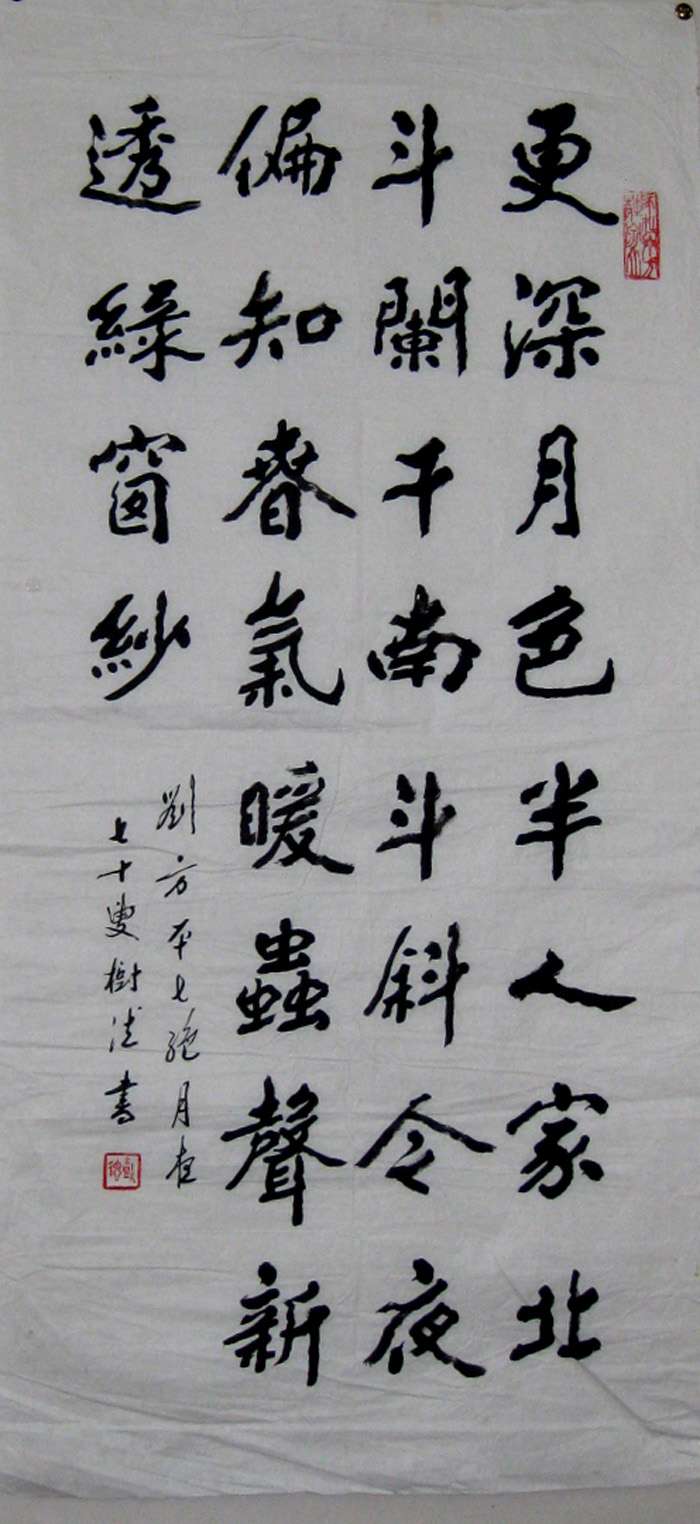 更深月色半人家北
斗闌干南斗斜令夜
偏知春氣暖蟲聲新
透綠窗紗
劉方平七絕月夜
七十叟樹法書